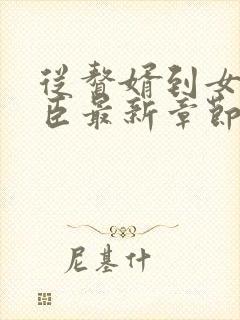 從贅婿到女
臣最新章節
尼基什